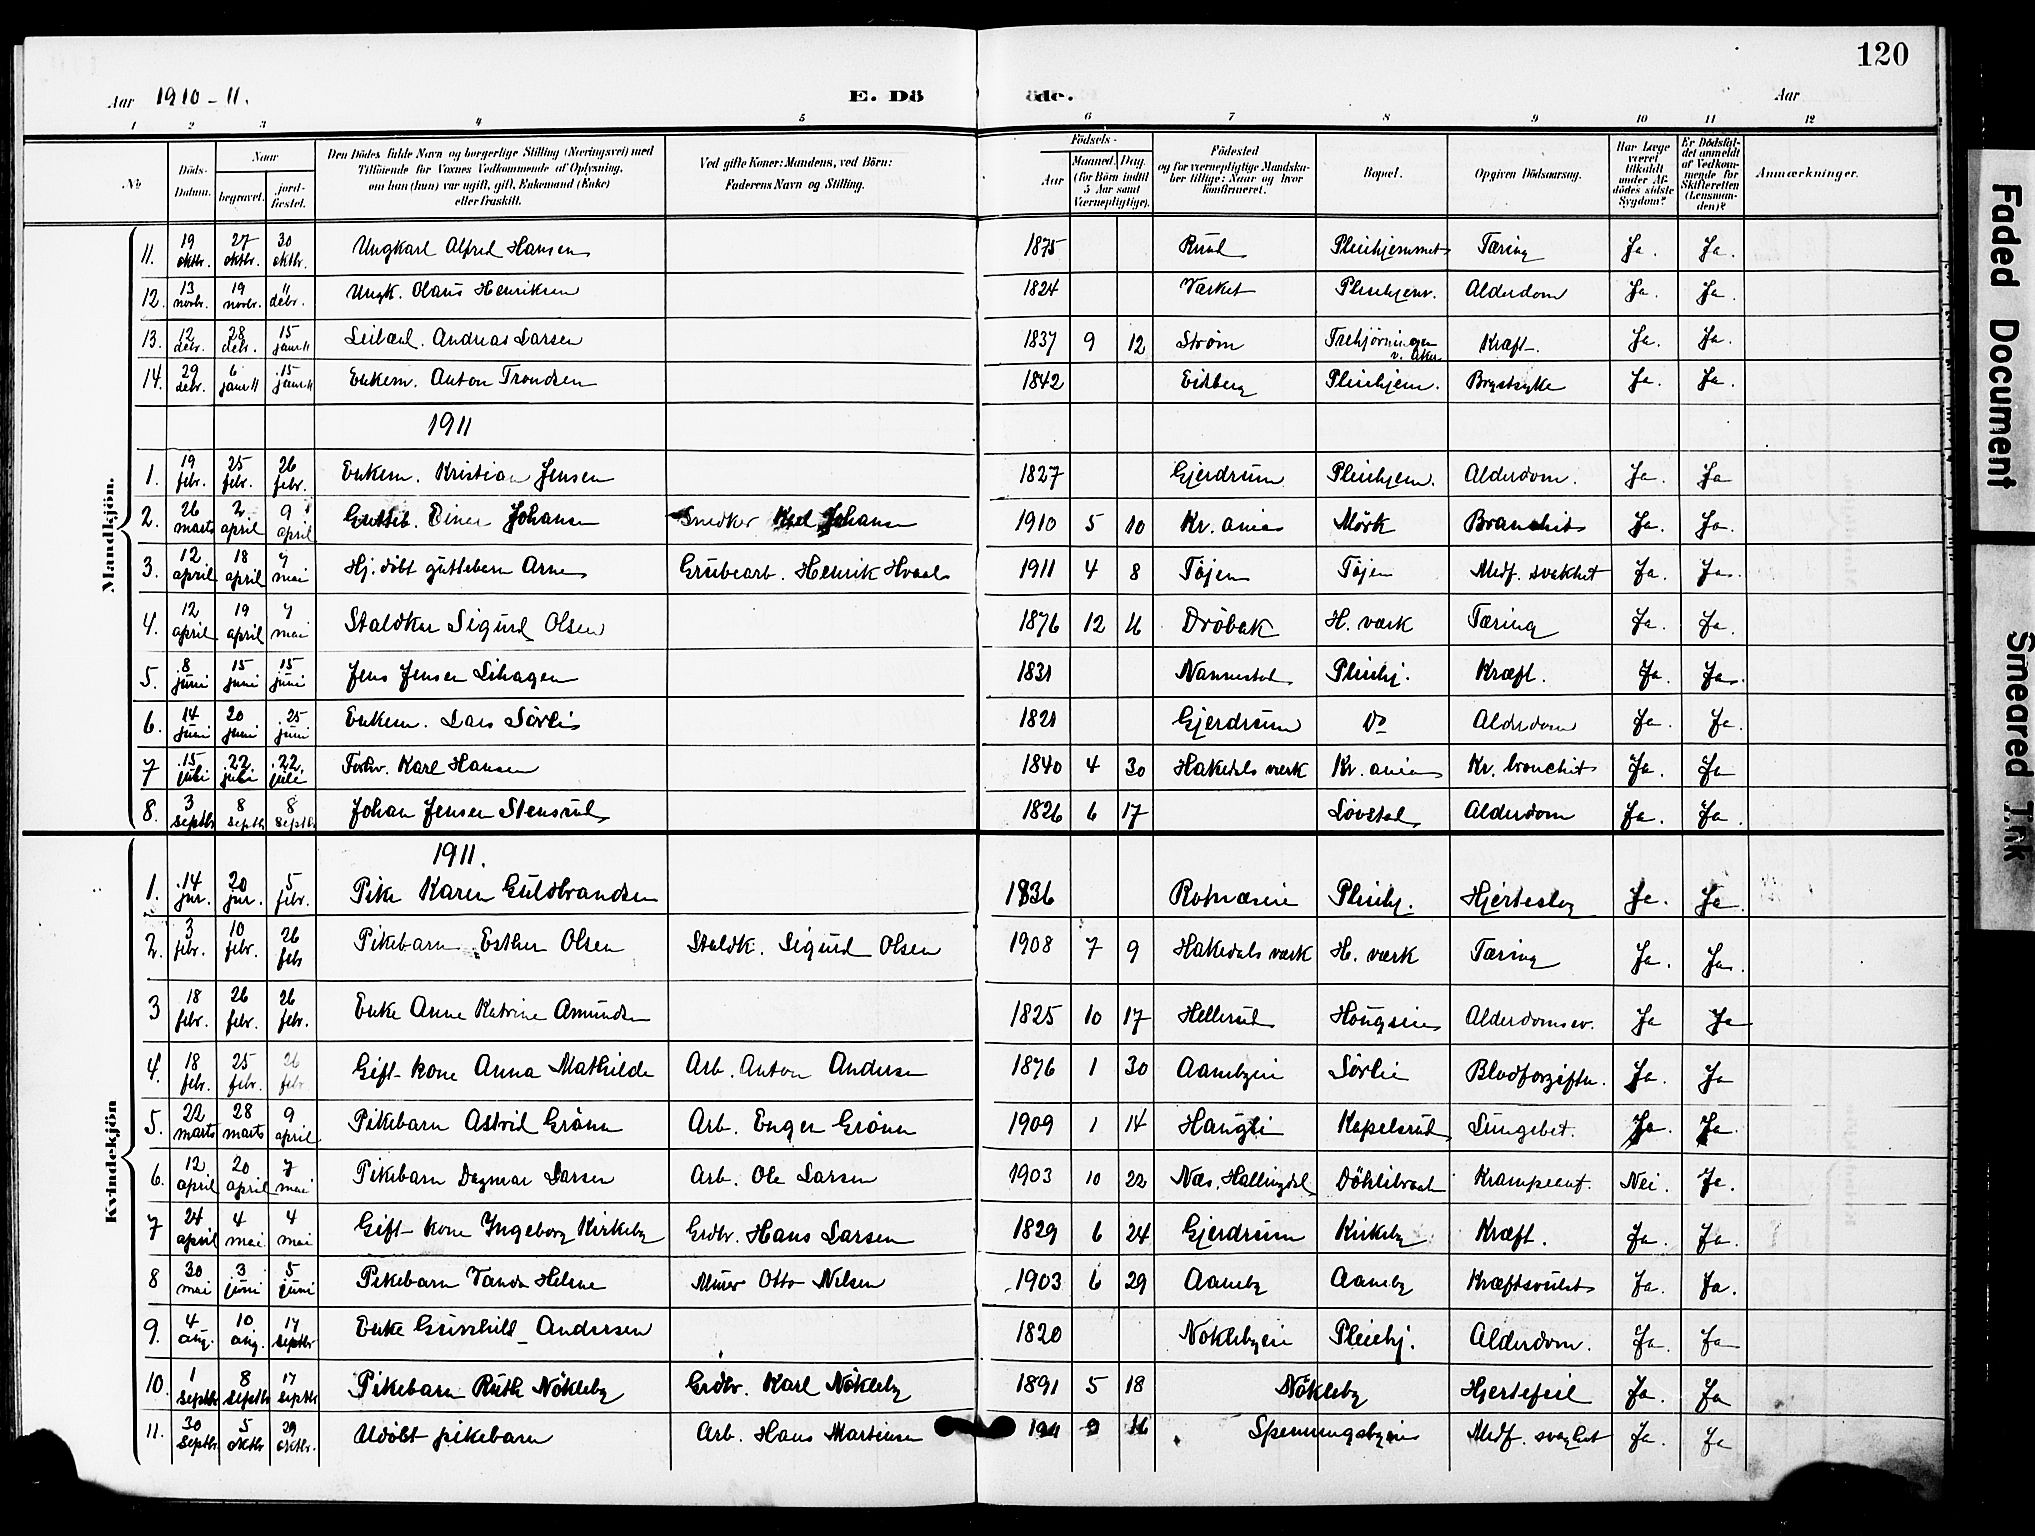 120
Aar 1910-11. E. Döde. Aar
1 2 3 4 5 6 7 8 9 10 11 12
No Döds-Datum. Naar begravet. jordfæstet. Den Dödes fulde Navn og borgerlige Stilling (Næringsvei) med Tilföiende for Voxnes Vedkommende af Oplysning, om han (hun) var ugift, gift, Enkemand (Enke) eller fraskilt. Ved gifte Koner: Mandens, ved Börn: Faderens Navn og Stilling. Födsels- Aar Maaned. Dag. (for Börn indtil 5 Aar samt Værnepligtige). Födested og for værnepligtige Mandskaber tillige: Naar og hvor Konfirmeret. Bopæl. Opgiven Dödsaarsag. Har Læge været tilkaldt under Afdödes sidste Sygdom? Er Dödsfaldet anmeldt af Vedkommende for Skifteretten (Lensmanden)? Anmærkninger.
Mandkjön.
11. 19 oktbr. 27 oktbr. 30 oktbr. Ungkarl Alfred Hansen 1875 Ruud Pleiehjemmet Tæring Ja. Ja.
12. 13 novbr. 19 novbr. 11 debr. Ungk. Olaus Henriksen 1824 Værket Pleiehjem. Alderdom Ja. Ja.
13. 12 debr. 28 debr. 15 janr 11 Leilænd. Andreas Larsen 1837 9 12 Strøm Trehjørningen v. Aker Kræft. Ja. Ja.
14. 29 debr. 6 janr 11 15 janr 11 Enkem. Anton Trondsen 1842 Eidsberg Pleiehjem. Brystsyke Ja. Ja.
1911
1. 19 febr. 25 febr. 26 febr. Enkem. Kristian Jensen 1827 Gjerdrum Pleiehjem. Alderdom. Ja. Ja
2. 26 marts 2 april 9 april Gutteb. Einar Johansen Snedker Johansen 1910 5 10 Kr.ania Mørk Bronchit Ja. Ja.
3. 12 april 18 april 7 mai Hj.döbt guttebarn Arne Grubearb. Henrik Hvaal 1911 4 8 Töjen Töjen Medf. svakhet Ja. Ja.
4. 12 april 19 april 7 mai Staldkar Sigurd Olsen 1876 12 16 Dröbak H. værk Tæring Ja. Ja.
5. 8 juni 15 juni 15 juni Jens Jensen Lihagen 1831 Nannestad Pleiehj. Kræft. Ja. Ja.
6. 14 juni 20 juni 25 juni Enkem. Lars Sörli 1821 Gjerdrum Do Alderdom Ja. Ja.
7 15 juli 22 juli 22 juli Forhv. Karl Hansen 1840 4 30 Hakedals værk Kr.ania Kr. bronchit Ja. Ja
8. 3 septbr 8 septb 8 septbr Johan Jensen Stensrud 1826 6 17 Løvstad Alderdom Ja. Ja.
Kvindekjön
1911.
1. 14 jnr. 20 jnr. 5 febr. Pike Karen Guldbrandsen 1836 Rotnæseie Pleiehj. Hjerteslag Ja. Ja.
2. 3 febr. 10 febr. 26 feb Pikebarn Esther Olsen Staldk. Sigurd Olsen 1908 7 9 Hakedals værk H. værk Tæring Ja. Ja.
3 18 febr. 26 febr. 26 febr. Enke Anne Katrine Amundsen 1825 10 17 Hellerud Haugseie Alderdomssv. Ja Ja
4. 18 febr. 25 febr. 26 febr Gift kone Anna Mathilde Arb. Anton Andersen 1876 1 30 Aamebyeie Sörlie Blodforgiftn. Ja. Ja
5. 22 marts 28 marts 9 april Pikebarn Astrid Grönn Arb. Enger Grönn 1909 1 14 Haugli Kapelsrud Lungebet. Ja. Ja
6. 12 april 20 april 7 mai Pikebarn Dagmar Larsen Arb. Ole Larsen 1903 10 22 Næs, Hallingdal Döhlibraat Krampeanf. Nei. Ja.
7 24 april 4 mai 4 mai Gift kone Ingeborg Kirkeby Grdbr. Hans Larsen 1829 6 24 Gjerdrum Kirkeby Kræft. Ja. Ja.
8 30 mai 3 juni 5 juni Pikebarn Vanda Helene Murer Otto Nilsen 1903 6 29 Aameby Aameby Kræftsvulst Ja. Ja.
9. 4 aug. 10 aug. 17 septbr Enke Gunhild Andersen 1820 Nöklebyeie Pleiehj. Alderdom. Ja. Ja
10. 1 septbr 8 septbr 17 septbr Pikebarn Ruth Nökleby Grdbr. Karl Nökleby 1891 5 18 Nökleby Hjertefeil Ja. Ja
11. 30 septbr. 5 oktbr 29 oktbr. Udöbt pikebarn Arb. Hans Martinsen 1911 9 16 Spenningsbyeie Medf. svaghet Ja. Ja
Faded Document
Smeared Ink